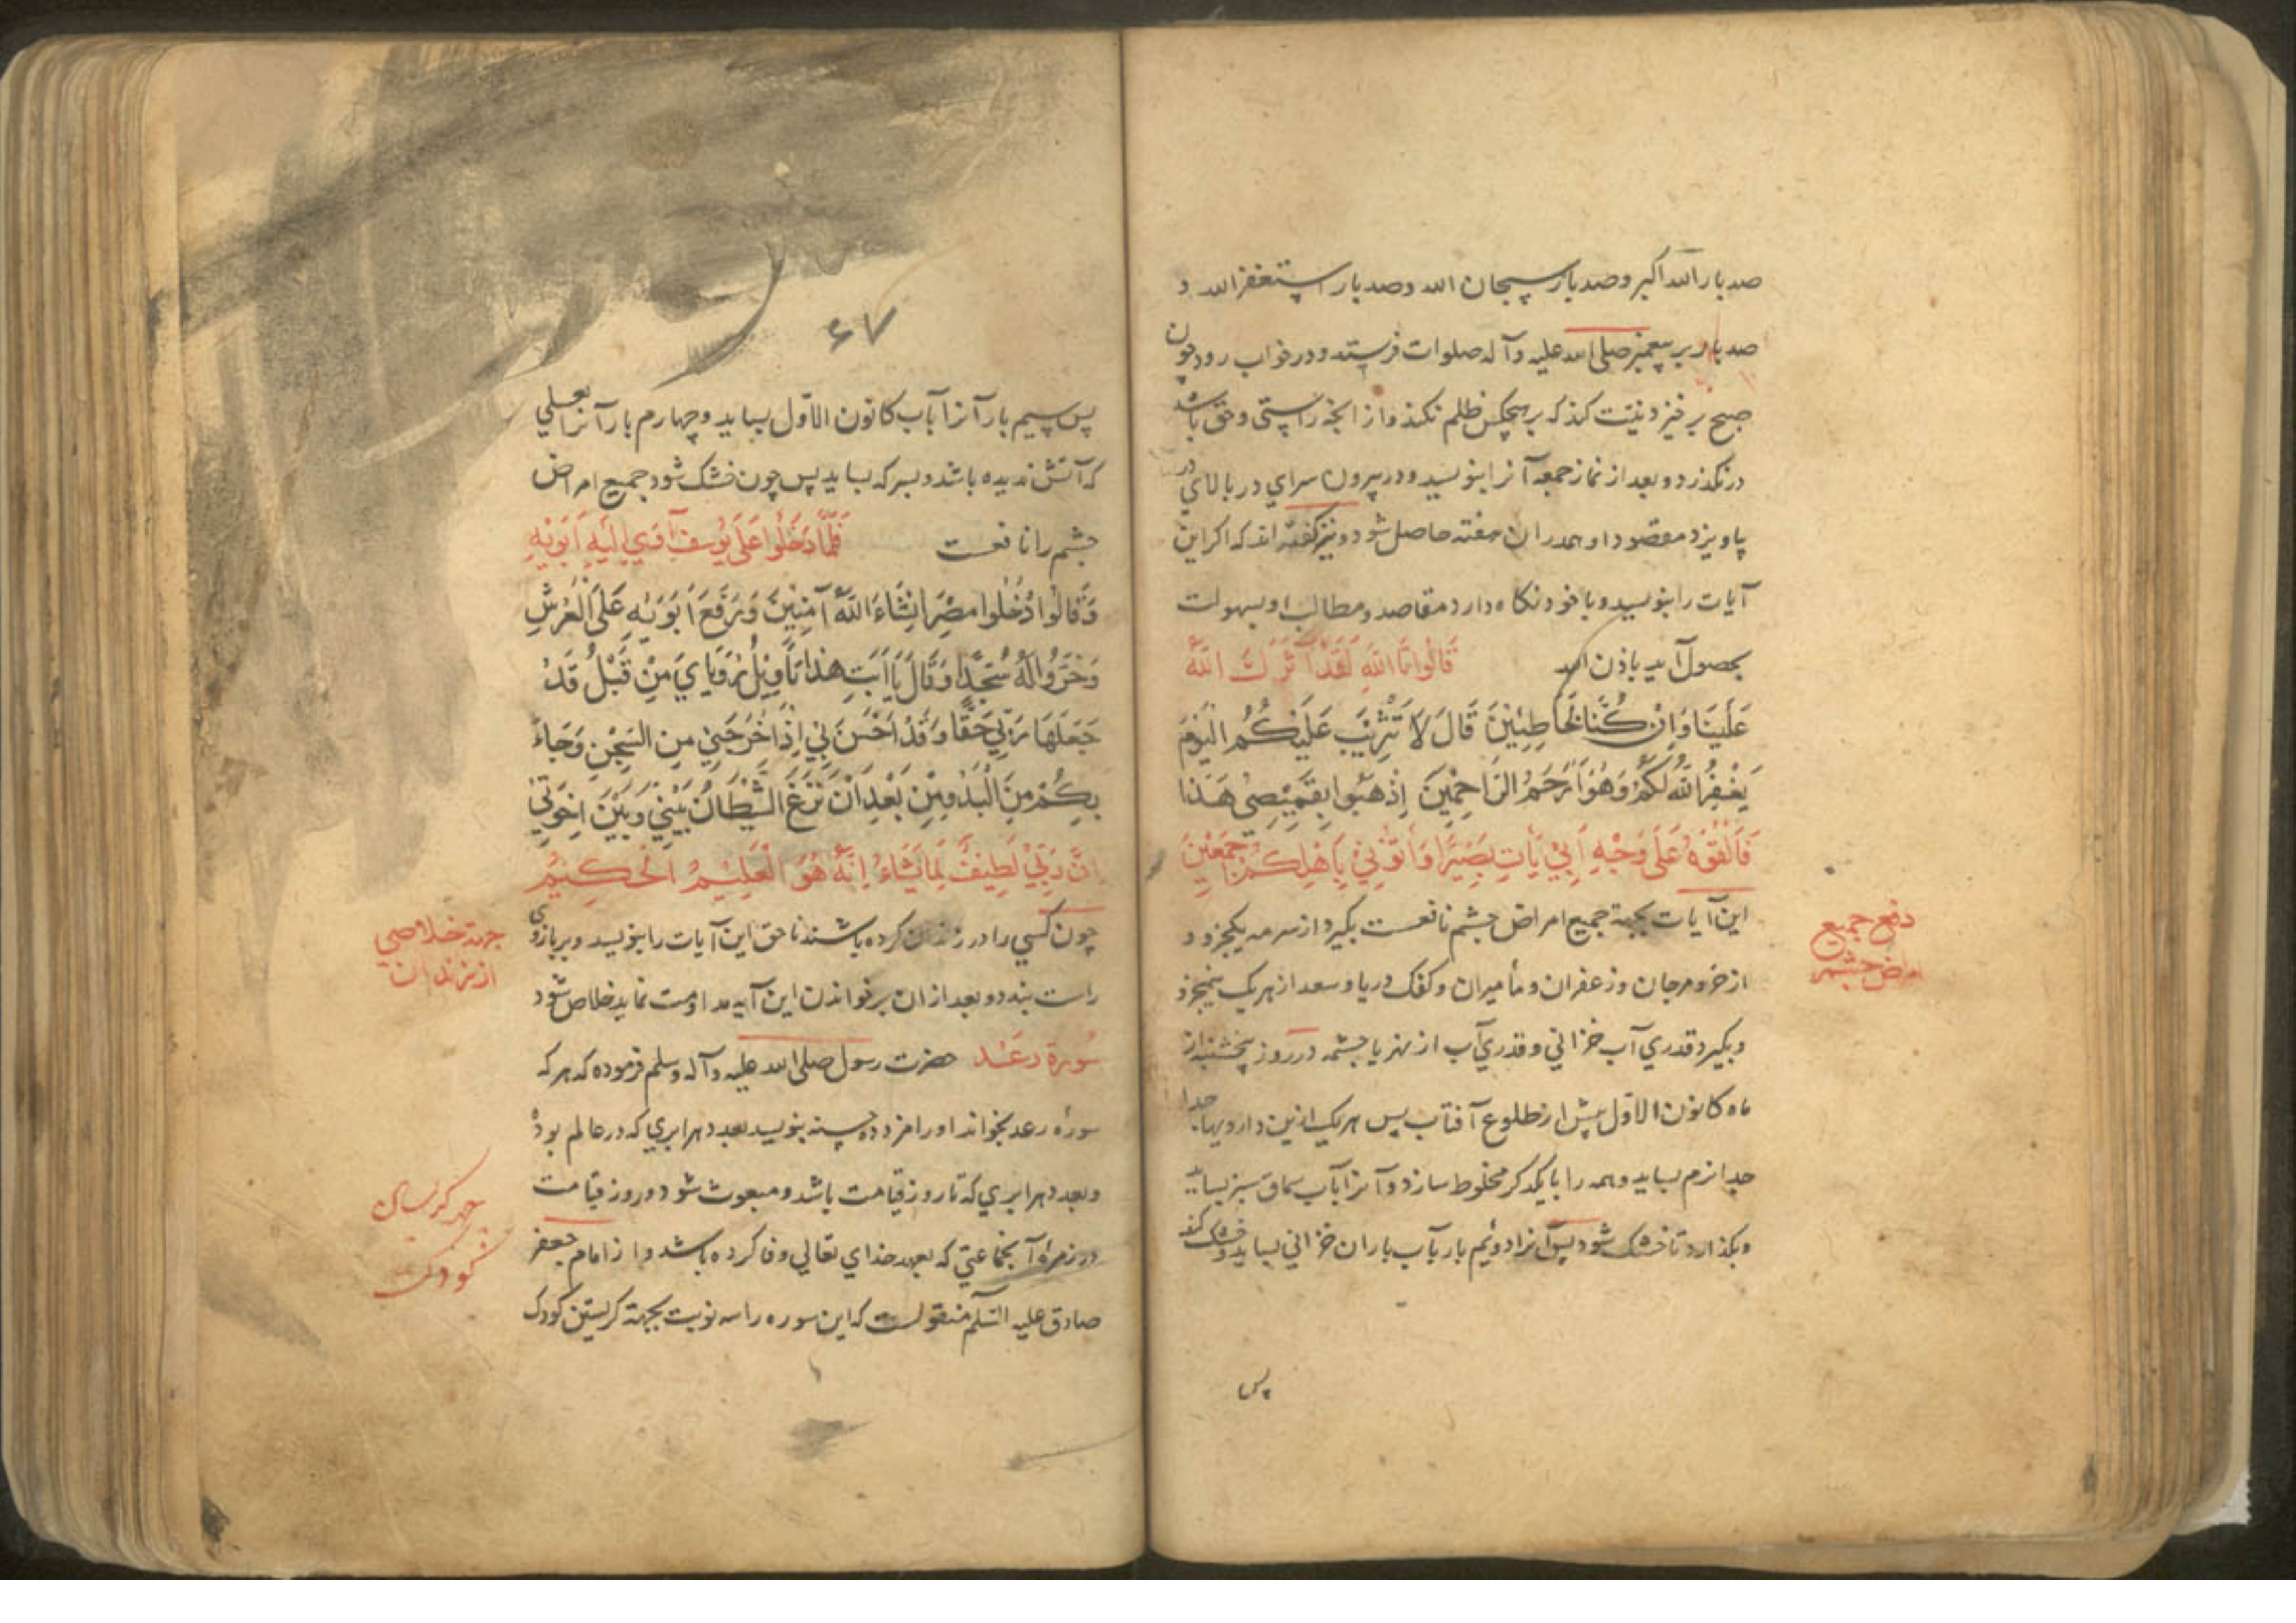 صد بار الله اکبر و صد بار سبحان الله و صد بار استغفر الله و
صد بار بر پیغمبر صلی الله علیه و آله صلوات فرستد و در خواب رود چون
صبح بر خیزد نیّت کند که بر هیچکس ظلم نکند و از آنچه راستی و حق باشد
در نکذرد و بعد از نماز جمعه آنرا بنویسد و در بیرون سرای در بالای در
بیاویزد مقصود او همدران هفته حاصل شود و نیز کفته اند که اکر این
آیات را بنویسد و با خود نکاه دارد مقاصد و مطالب او بسهولت
بحصول آید باذن الله قَالُوا تَاللَّهِ لَقَدْ آثَرَكَ اللَّهُ
عَلَيْنَا وَاِنْ كُنَّا لَخَاطِئِينَ قَالَ لَا تَثْرِيبَ عَلَيْكُمُ الْيَوْمَ
يَغْفِرُ اللَّهُ لَكُمْ وَهُوَ اَرْحَمُ الرَّاحِمِينَ اِذْهَبُوا بِقَمِيصِى هَذَا
فَاَلْقُوهُ عَلَى وَجْهِ اَبِي يَأْتِ بَصِيرًا وَأْتُونِي بِاَهْلِكُمْ اَجْمَعِينَ
این آیات بجهة جمیع امراض چشم نافعست بکیرد از سرمه یکجزو و
دفع جمیع
امراض چشم
از خرو مرجان و زعفران و مأمیران و کفک دریا و سعد از هر یک نیمجزو
و بکیرد قدری آب خزانی و قدری آب از نهر یا چشمه در روز پنجشنبه از
ماه کانون الاوّل پیش از طلوع آفتاب پس هر یک ازین دارویها جدا
جدا نرم بساید و همه را با یکدکر مخلوط سازد و آنرا بآب سماق سبز بساید
و بکذارد تا خشک شود پس آنرا دوئم بار بآب باران خزانی بساید و خشک کند
پس
۶۷
پس سیم بار آنرا بآب کانون الاوّل بساید و چهارم بار آنرا بعسلی
که آتش ندیده باشد و بسرکه بساید پس چون خشک شود جمیع امراض
چشم را نافعست فَلَمَّا دَخَلُوا عَلَى يُوسُفَ آوَى اِلَيْهِ اَبَوَيْهِ
وَقَالُوا دْخُلُوا مِصْرَ اِنْشَاءَ اللَّهُ آمِنِينَ وَرَفَعَ اَبَوَيْهِ عَلَى الْعَرْشِ
وَخَرُّوا لَهُ سُجَّدًا وَقَالَ يَا اَبَتِ هذَا تَأْوِيلُ رُؤْيَايَ مِنْ قَبْلُ قَدْ
جَعَلَهَا رَبِّي حَقًّا وَقَدْ اَحْسَنَ بِي اِذْ اَخْرَجَنِي مِنَ السِّجْنِ وَجَاءَ
بِكُمْ مِنَ الْبَدْوِ مِنْ بَعْدِ اَنْ نَزَغَ الشَّيْطَانُ بَيْنِي وَبَيْنَ اِخْوَتِي
اِنَّ رَبِّي لَطِيفٌ لِمَا يَشَاءُ اِنَّهُ هُوَ الْعَلِيمُ الْحَكِيمُ
چون کسی را در زندان کرده باشند ناحق این آیات را بنویسد و بر بازوی
جهة خلاصی
از زندان
راست بندد و بعد از ان بر خواندن این آیه مداومت نماید خلاص شود
سُورة رعَد حضرت رسول صلی الله علیه و آله و سلم فرموده که هر که
سورهٔ رعد بخواند او را مزد ده حسنه بنویسد بعدد هر ابری که در عالم بود
و بعدد هر ابری که تا روز قیامت باشد و مبعوث شود در روز قیامت
جهة کریهٔ
کودک
در زمرهٔ آنجماعتی که بعهد خدای تعالی وفا کرده باشد و از امام جعفر
صادق علیه السّلم منقولست که این سوره را سه نوبت بجهة کریستن کودک